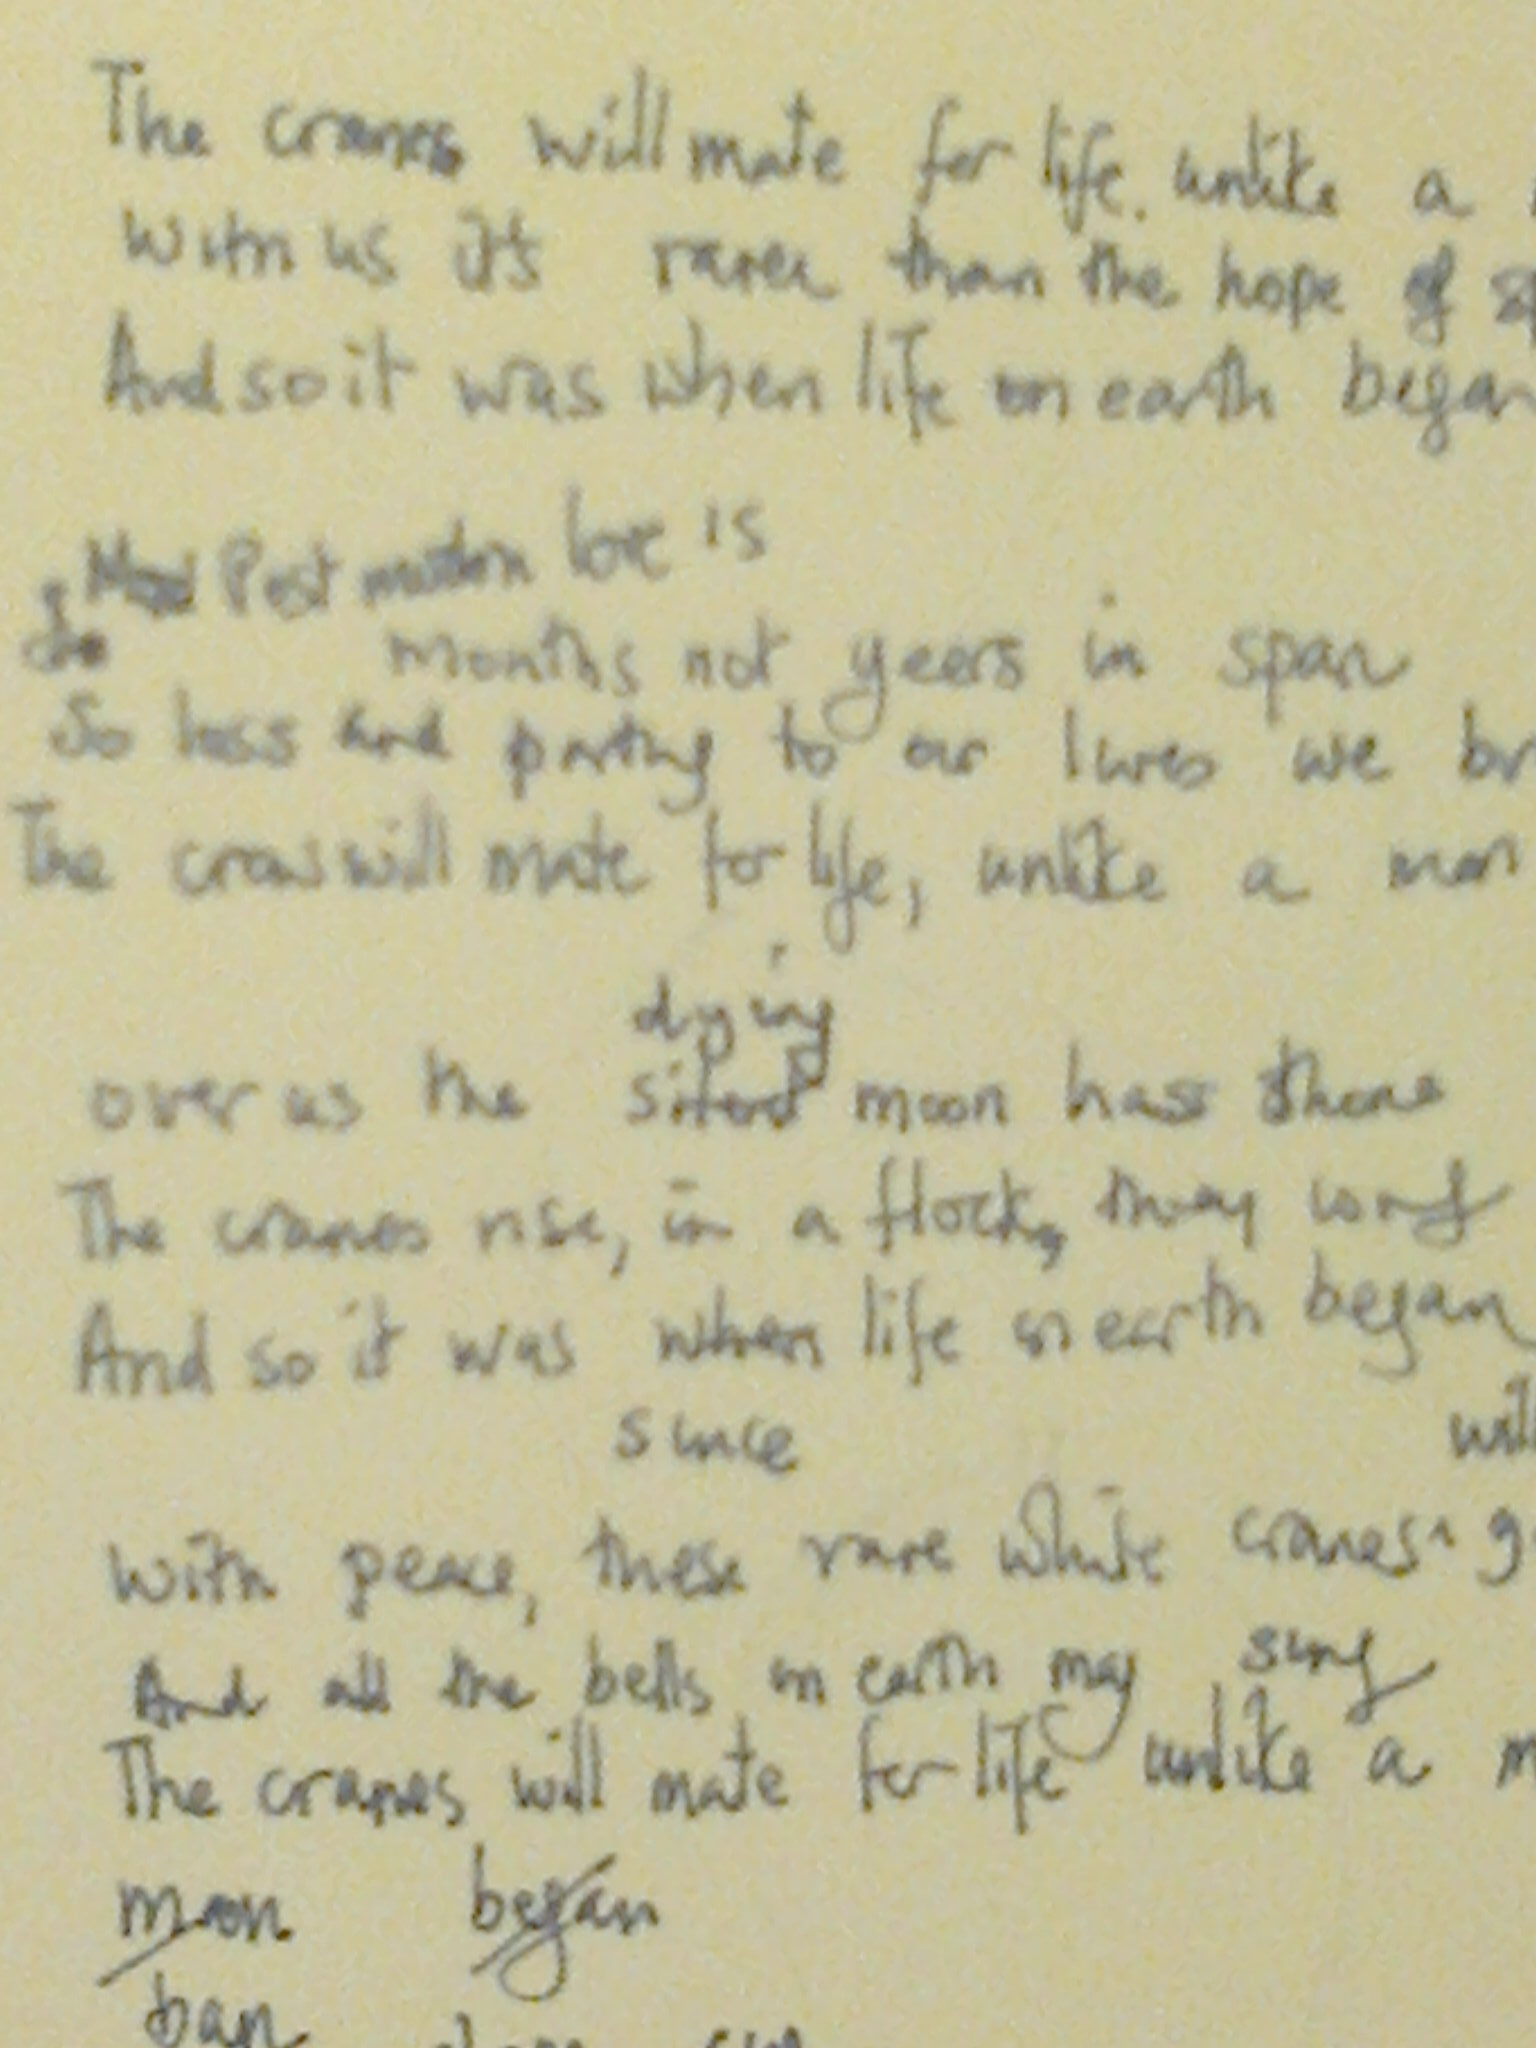 The cranes will mate for life. unlike a
With us it's rarer than the hope of
And so it was when life on earth began
Post modern love is
months not years in span
So loss and parting to our lives we
The cranes will mate for life, unlike a man
dying
over us the silver moon has shone
The cranes rise, in a flock, they
And so it was when life on earth began
since will
With peace, these rare white cranes
And all the bells on earth may sing
The cranes will mate for life unlike a
moon began
ban